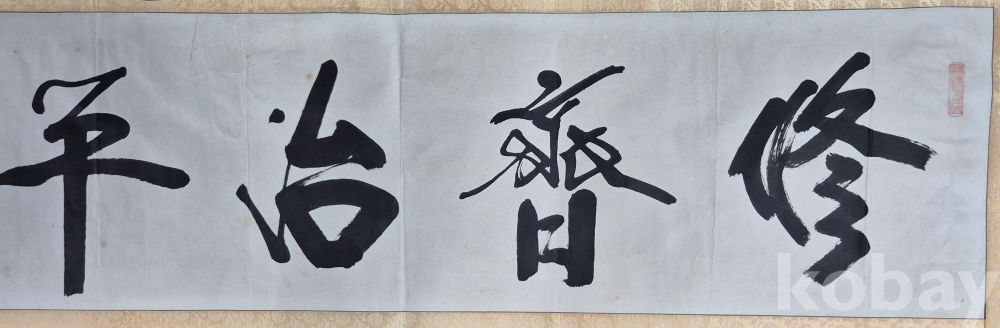 修齊治平
kobay